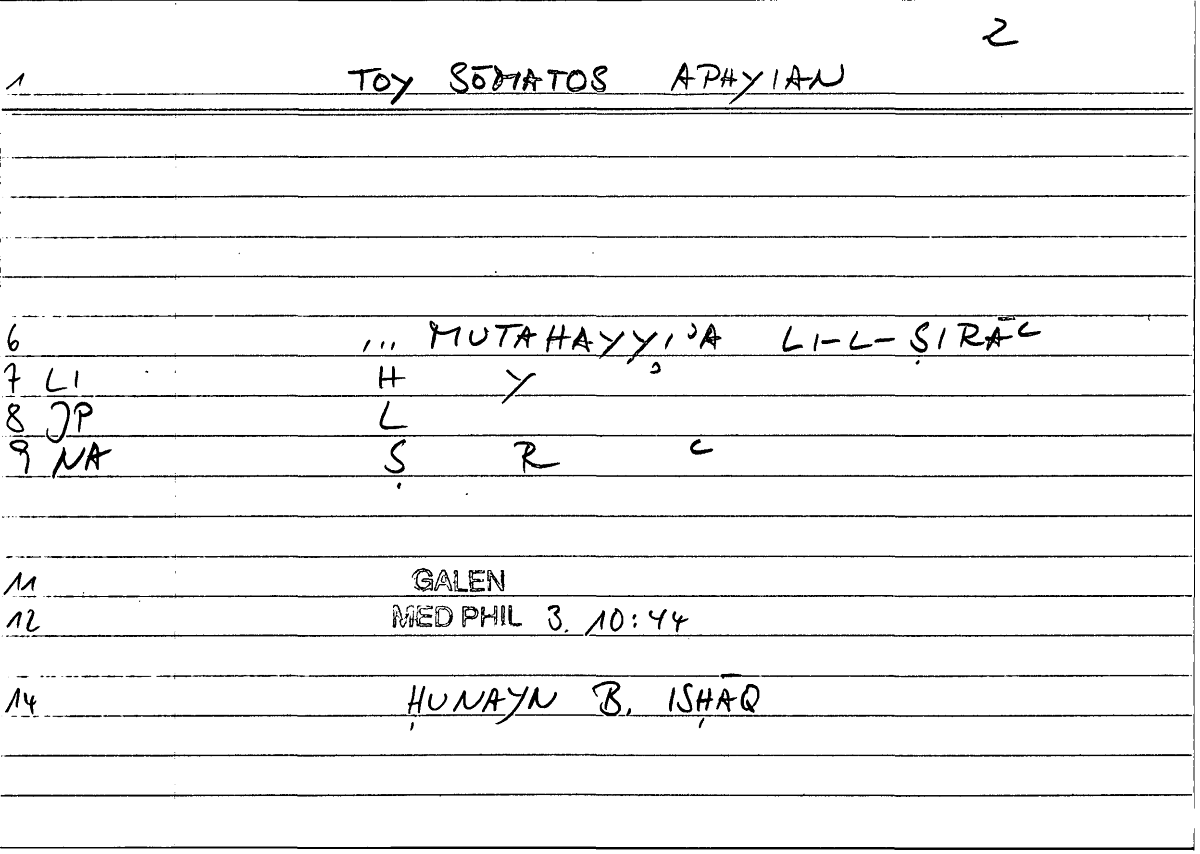 2
1 TOY SŌMATOS APHYIAN
6 ... MUTAHAYYIʾA LI-L-ṢIRĀʿ
7 LI H Y ʾ
8 JP L
9 NA Ṣ R ʿ
11 GALEN
12 MED PHIL 3. 10:44
14 ḤUNAYN B. ISḤĀQ